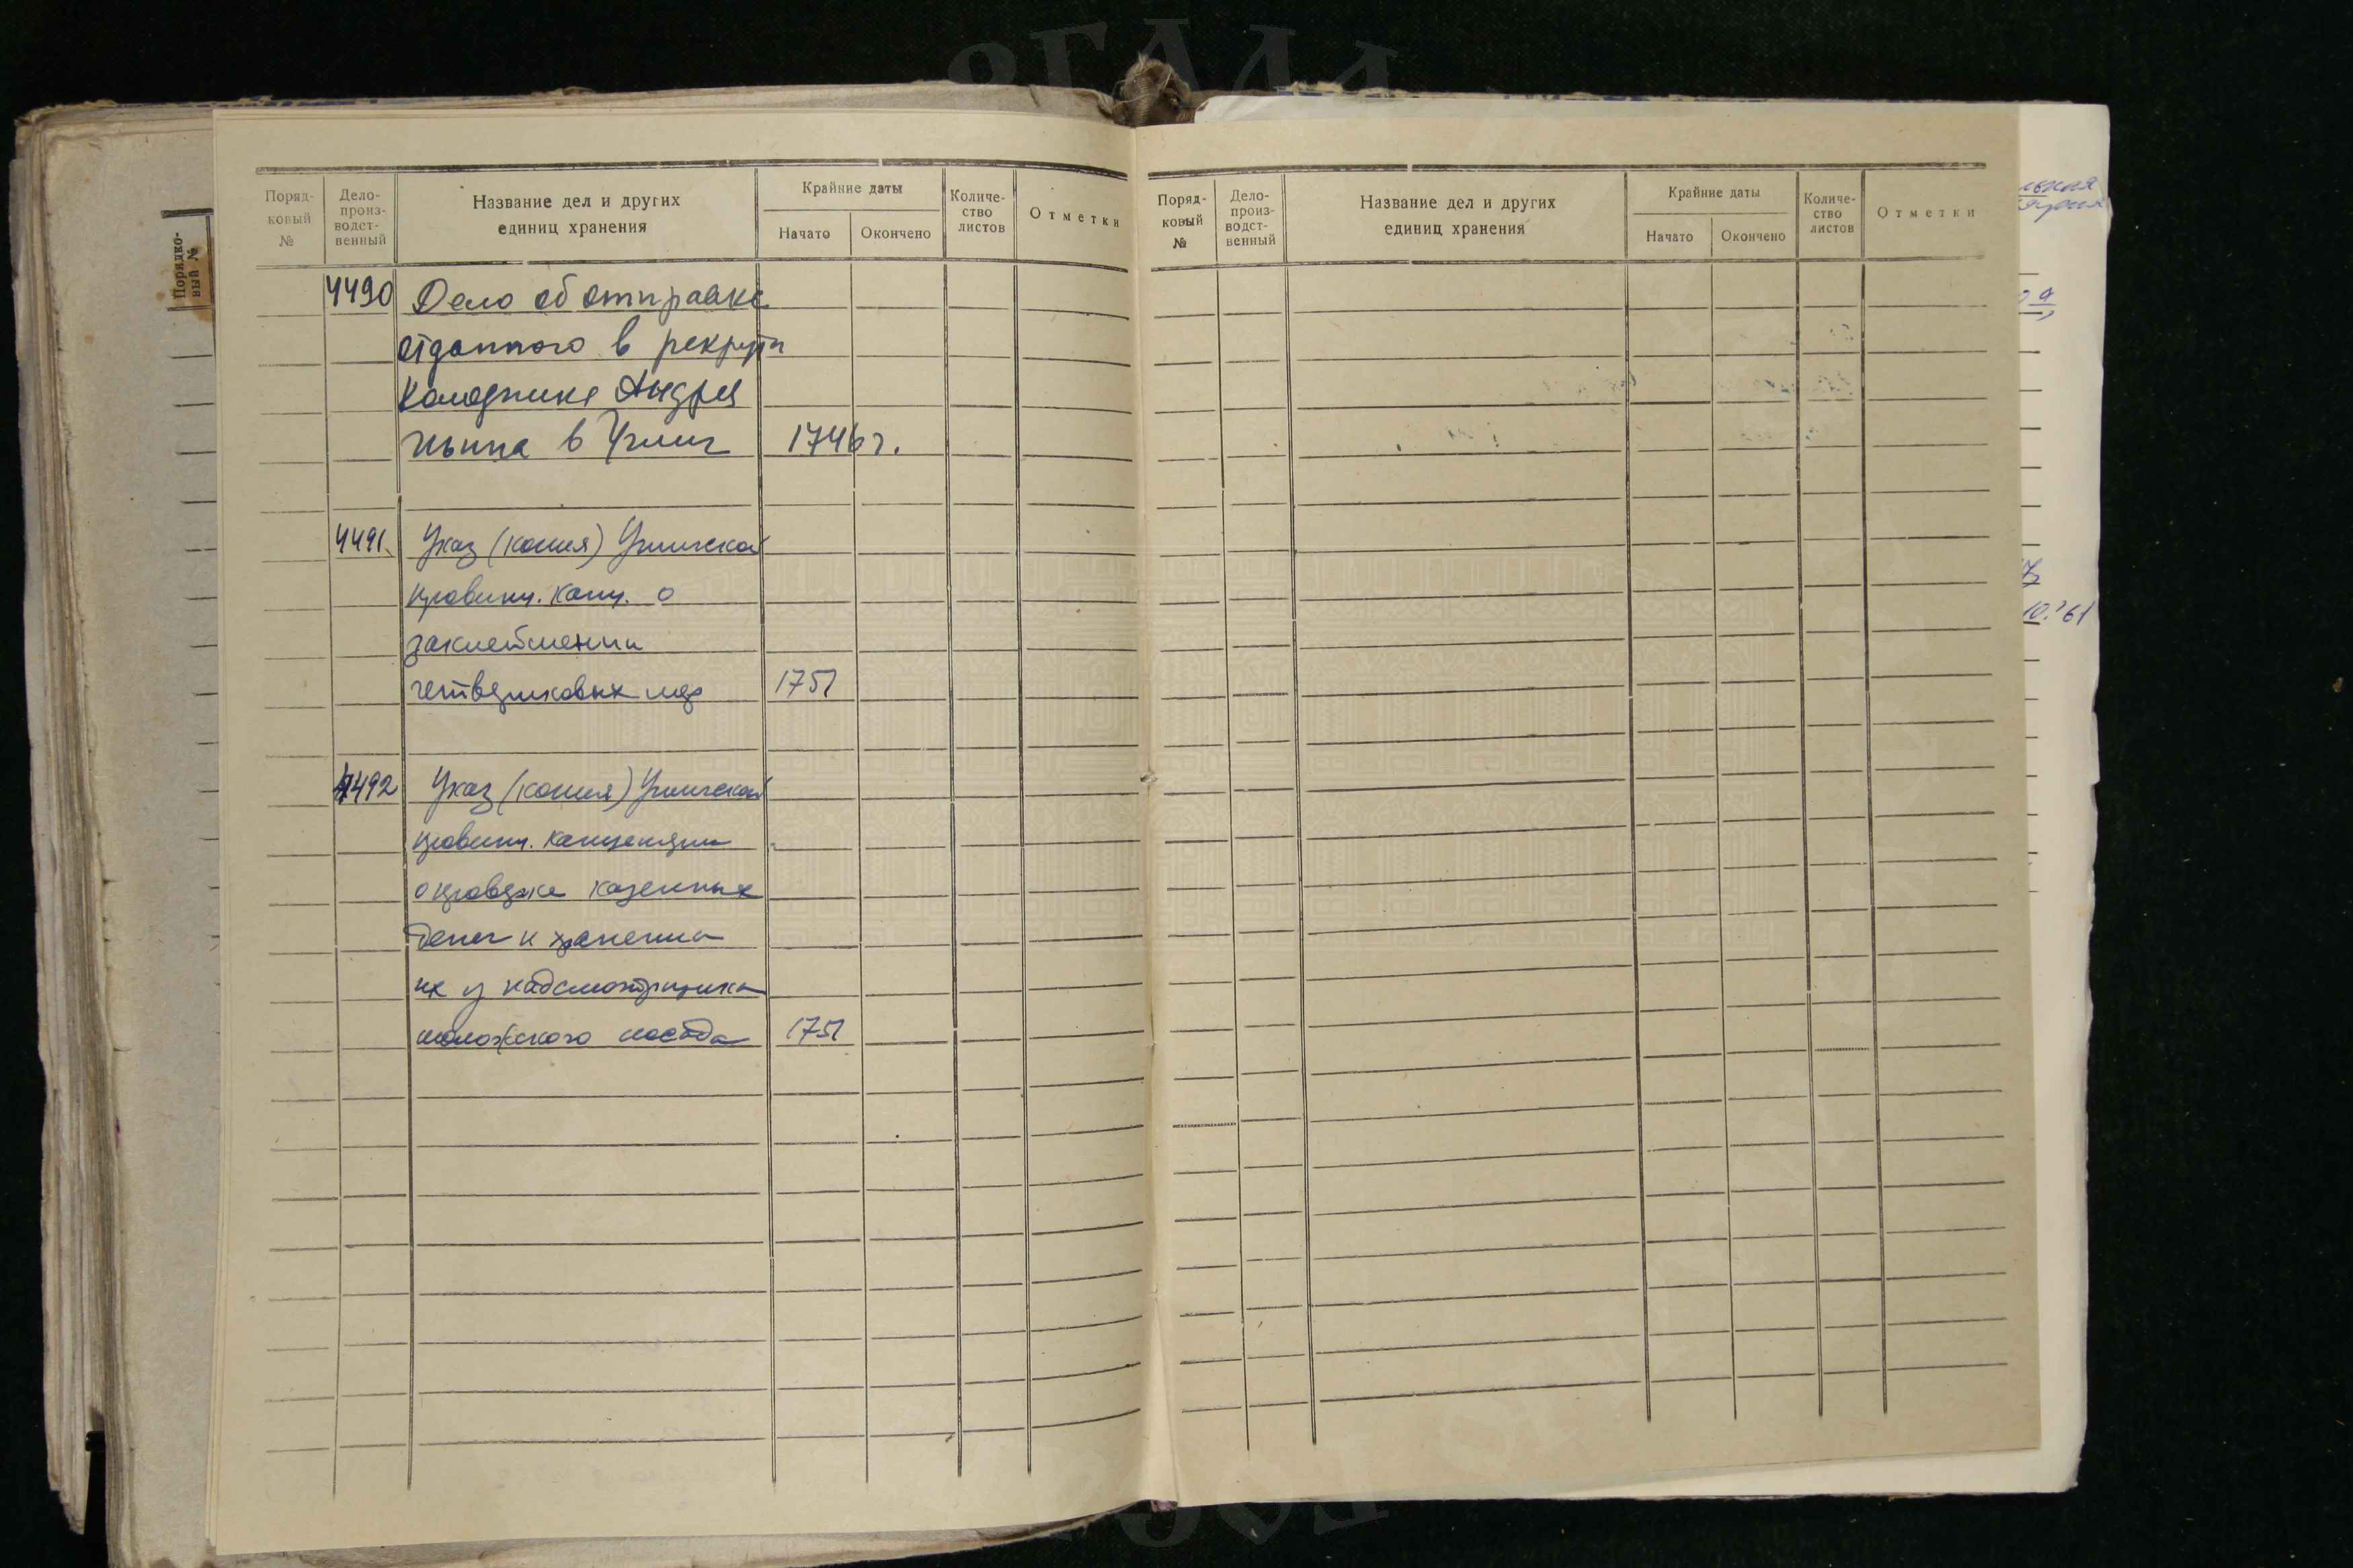 РГАДА
Порядко-
вый №
Поряд-
ковый
№
Дело-
произ-
водст-
венный
Название дел и других
единиц хранения
Крайние даты
Начато Окончено
Количе-
ство
листов
Отметки
4490 Дело об отправке
отданного в рекруты
колодника Андрея
Ильина в Углич 1746 г.
4491. Указ (копия) Угличской
провинц. канц. о
заклеймении
четвериковых мер 1751
4492 Указ (копия) Угличской
провинц. канцелярии
о провозке казенных
денег и хранении
их у надсмотрщика
моложского посада 1751
Поряд-
ковый
№
Дело-
произ-
водст-
венный
Название дел и других
единиц хранения
Крайние даты
Начато Окончено
Количе-
ство
листов
Отметки